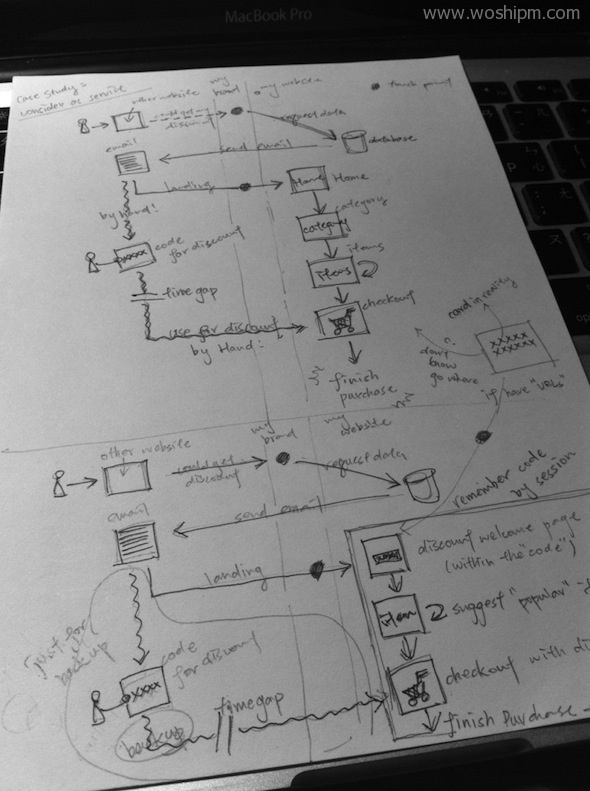 www.woshipm.com
MacBook Pro
case study:
consider as service
other website
my
brand
my website
touch point
could get my
discount
request data
database
email
send email
landing
Home
Home
by hand!
category
category
xxxxx
code
for discount
items
items
time gap
checkout
use for discount
by Hand!
finish
purchase
card in reality
xxxxx
xxxxxx
?
don't
know
go where
if have "URLs"
other website
my
brand
my
website
could get
discount
request data
remember code
by session
email
send email
landing
discount welcome page
(within the "code")
xxxx
item
suggest "popular"
just for
back up
code
for discount
xxxx
backup
time gap
checkout with
finish purchase